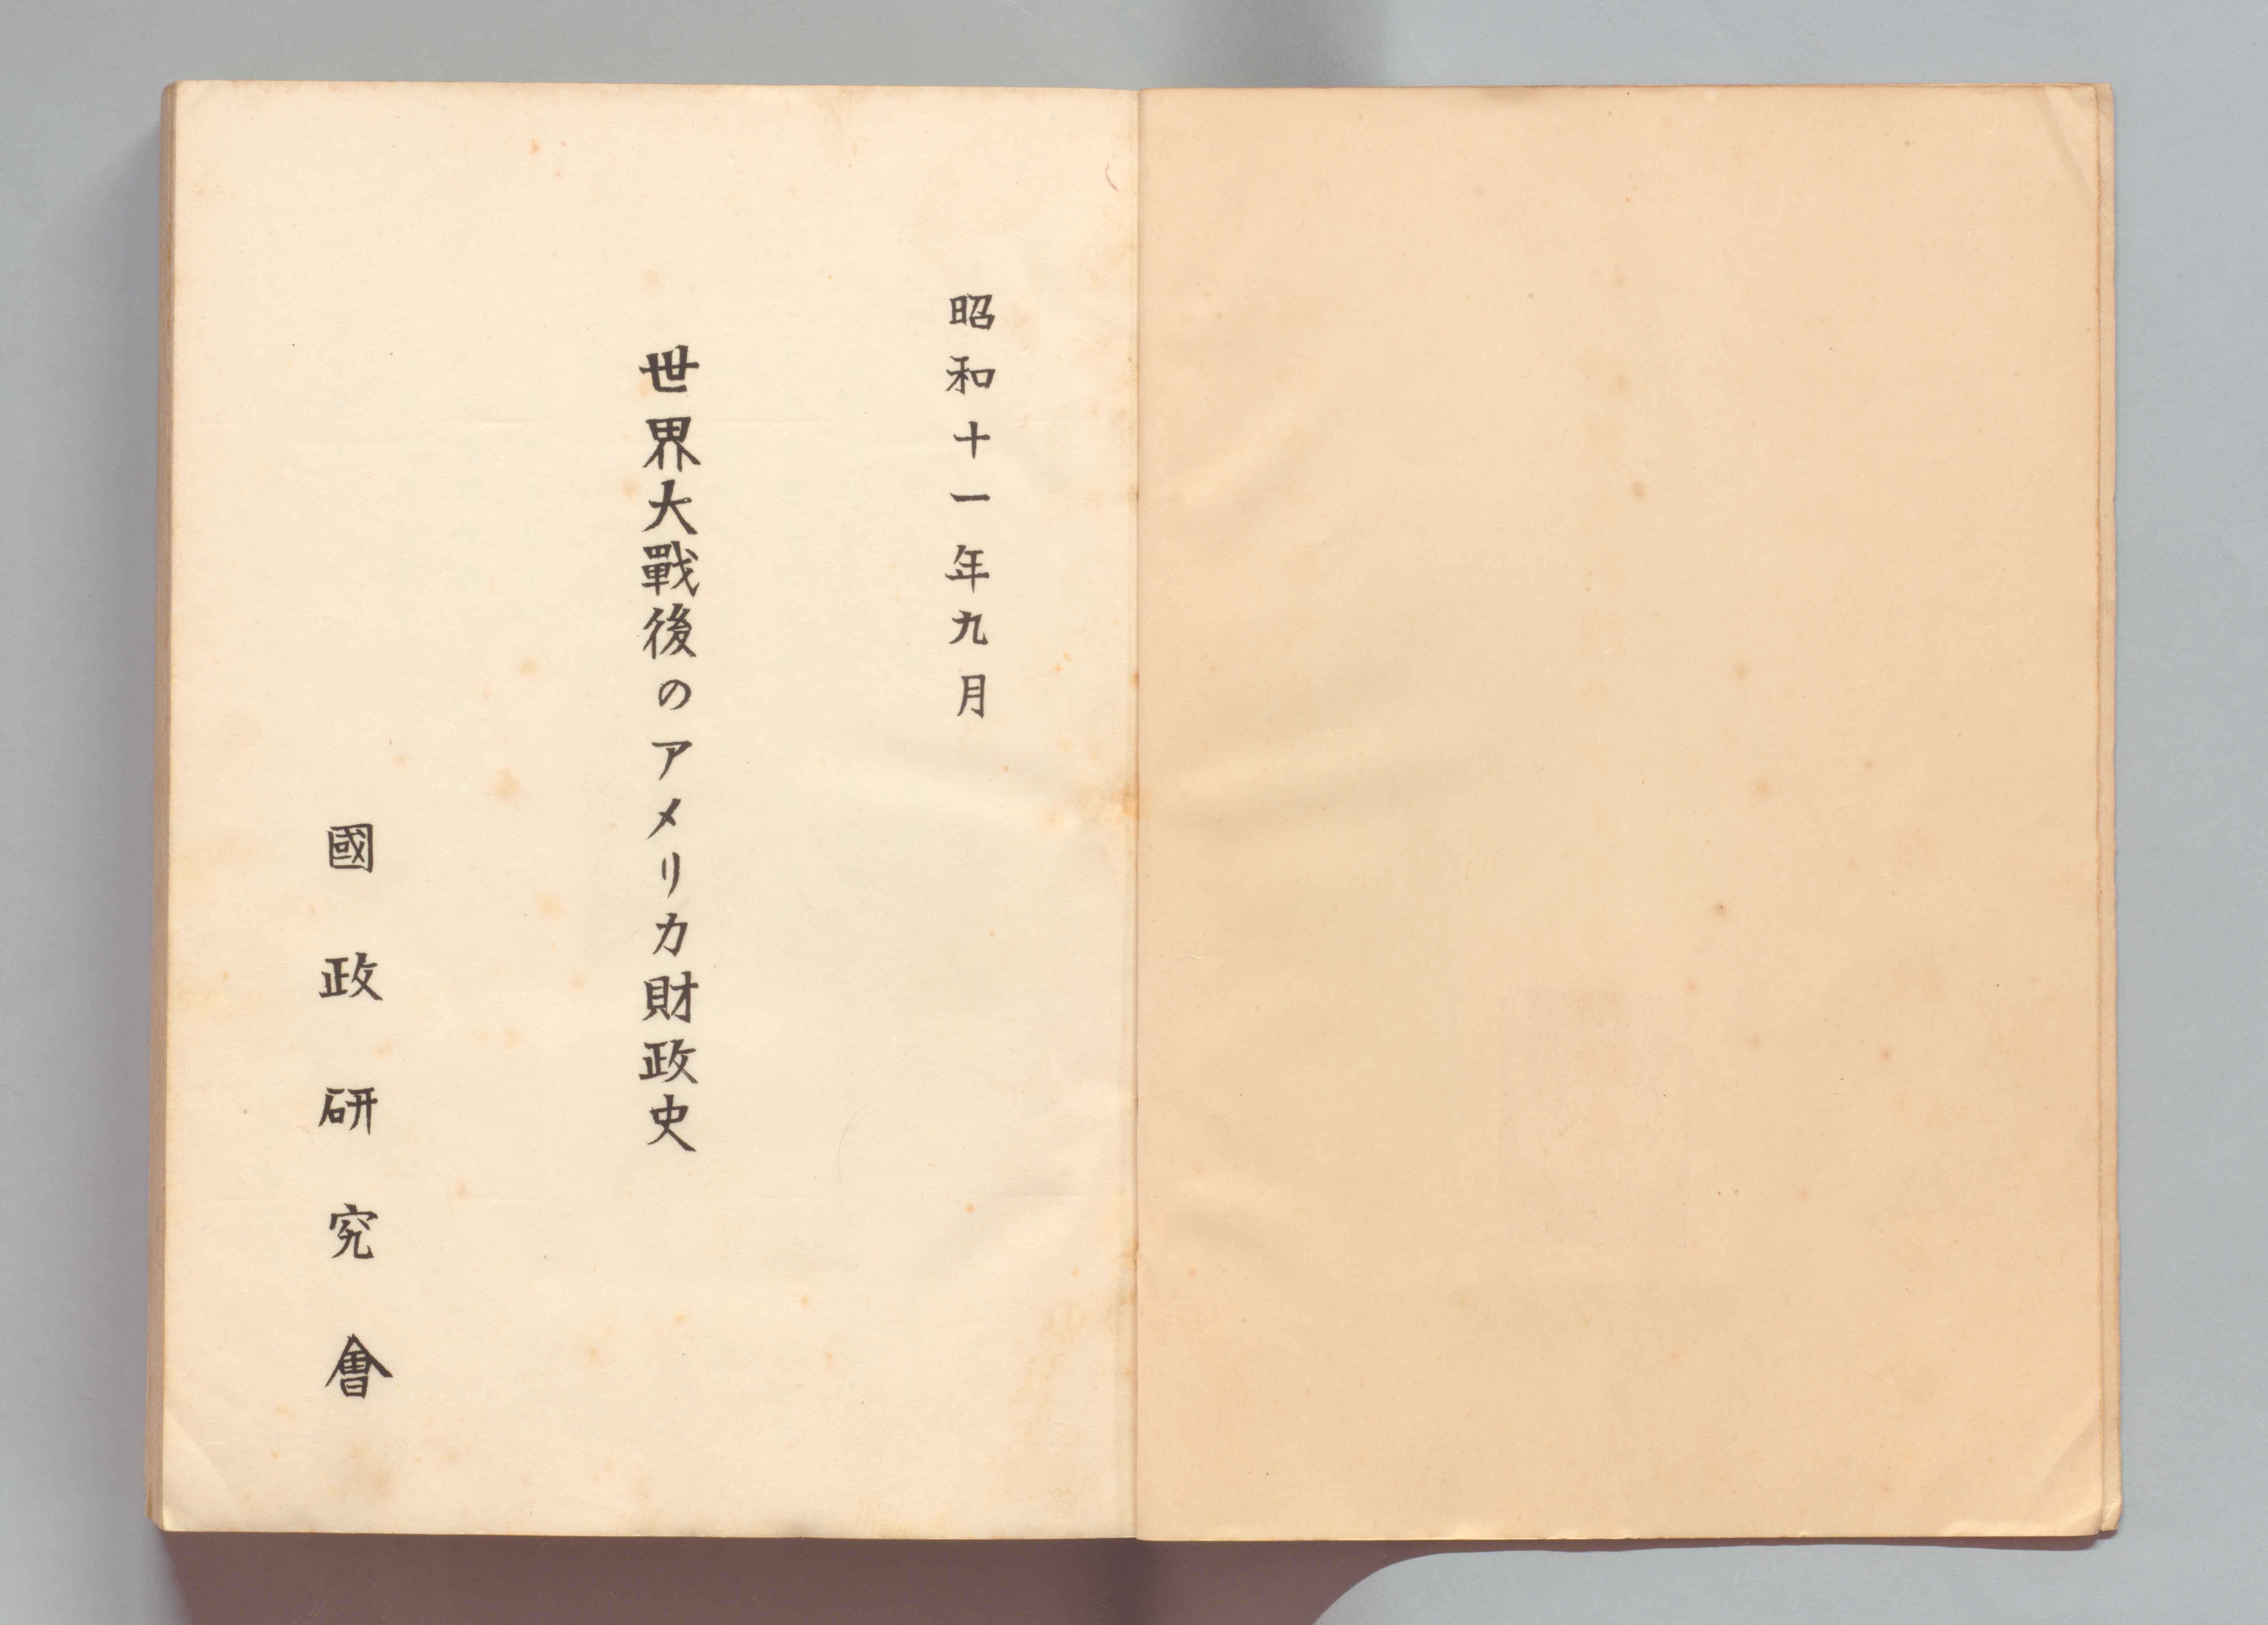 昭和十一年九月
世界大戰後のアメリカ財政史
國政研究會